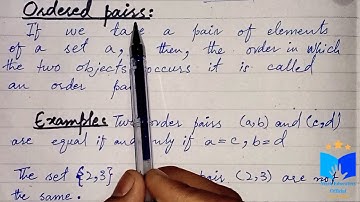 Ordered pairs:
If we take a pair of elements
of a set a, then, the order in which
the two objects occurs it is called
an order pai
Examples Two order pairs (a,b) and (c,d)
are equal if and only if a=c, b=d
The set {2,3} pair (2,3) are not
the same.